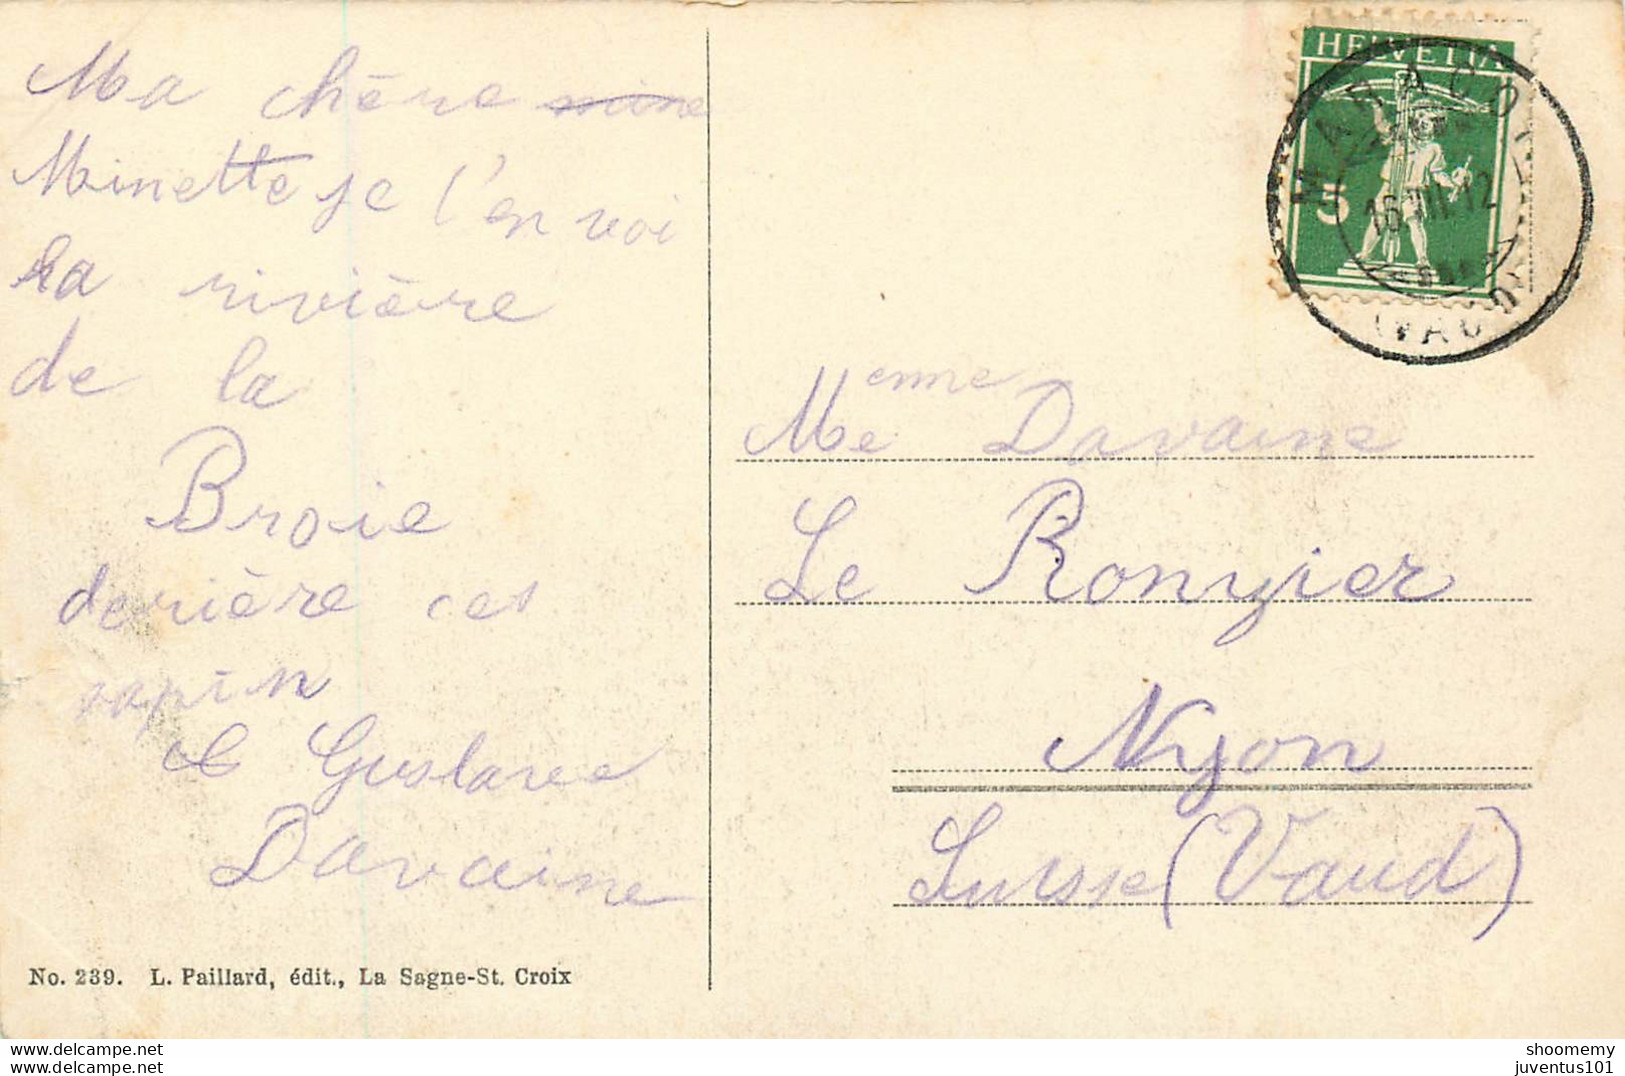 Ma chère
Minette je l'en voi
la rivière
de la
Broie
derière ces
sapin
Gustave
Davaine
No. 239. L. Paillard, édit., La Sagne-St. Croix
HELVETIA
5
MARACON
16.VIII.12
(VAUD)
Mme Davaine
Le Ronzier
Nyon
Suisse (Vaud)
www.delcampe.net
shoomemy
juventus101